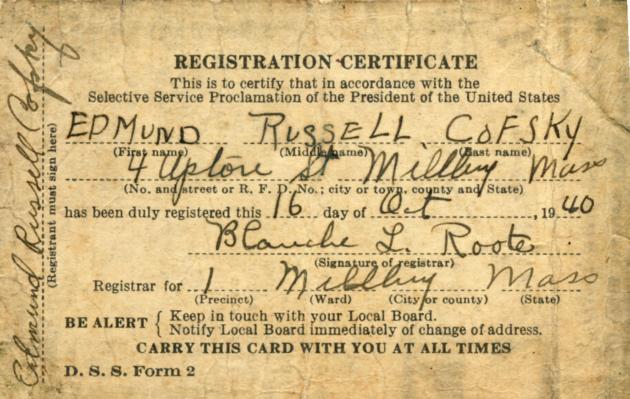 REGISTRATION CERTIFICATE
This is to certify that in accordance with the
Selective Service Proclamation of the President of the United States
EDMUND RUSSELL COFSKY
(First name) (Middle name) (Last name)
4 Upton St Millbury Mass
(No. and street or R. F. D. No.; city or town, county and State)
has been duly registered this 16 day of Oct, 1940
Blanche L. Roote
(Signature of registrar)
Registrar for 1 Millbury Mass
(Precinct) (Ward) (City or county) (State)
BE ALERT { Keep in touch with your Local Board.
Notify Local Board immediately of change of address.
CARRY THIS CARD WITH YOU AT ALL TIMES
D. S. S. Form 2
Edmund Russell Cofsky
(Registrant must sign here)